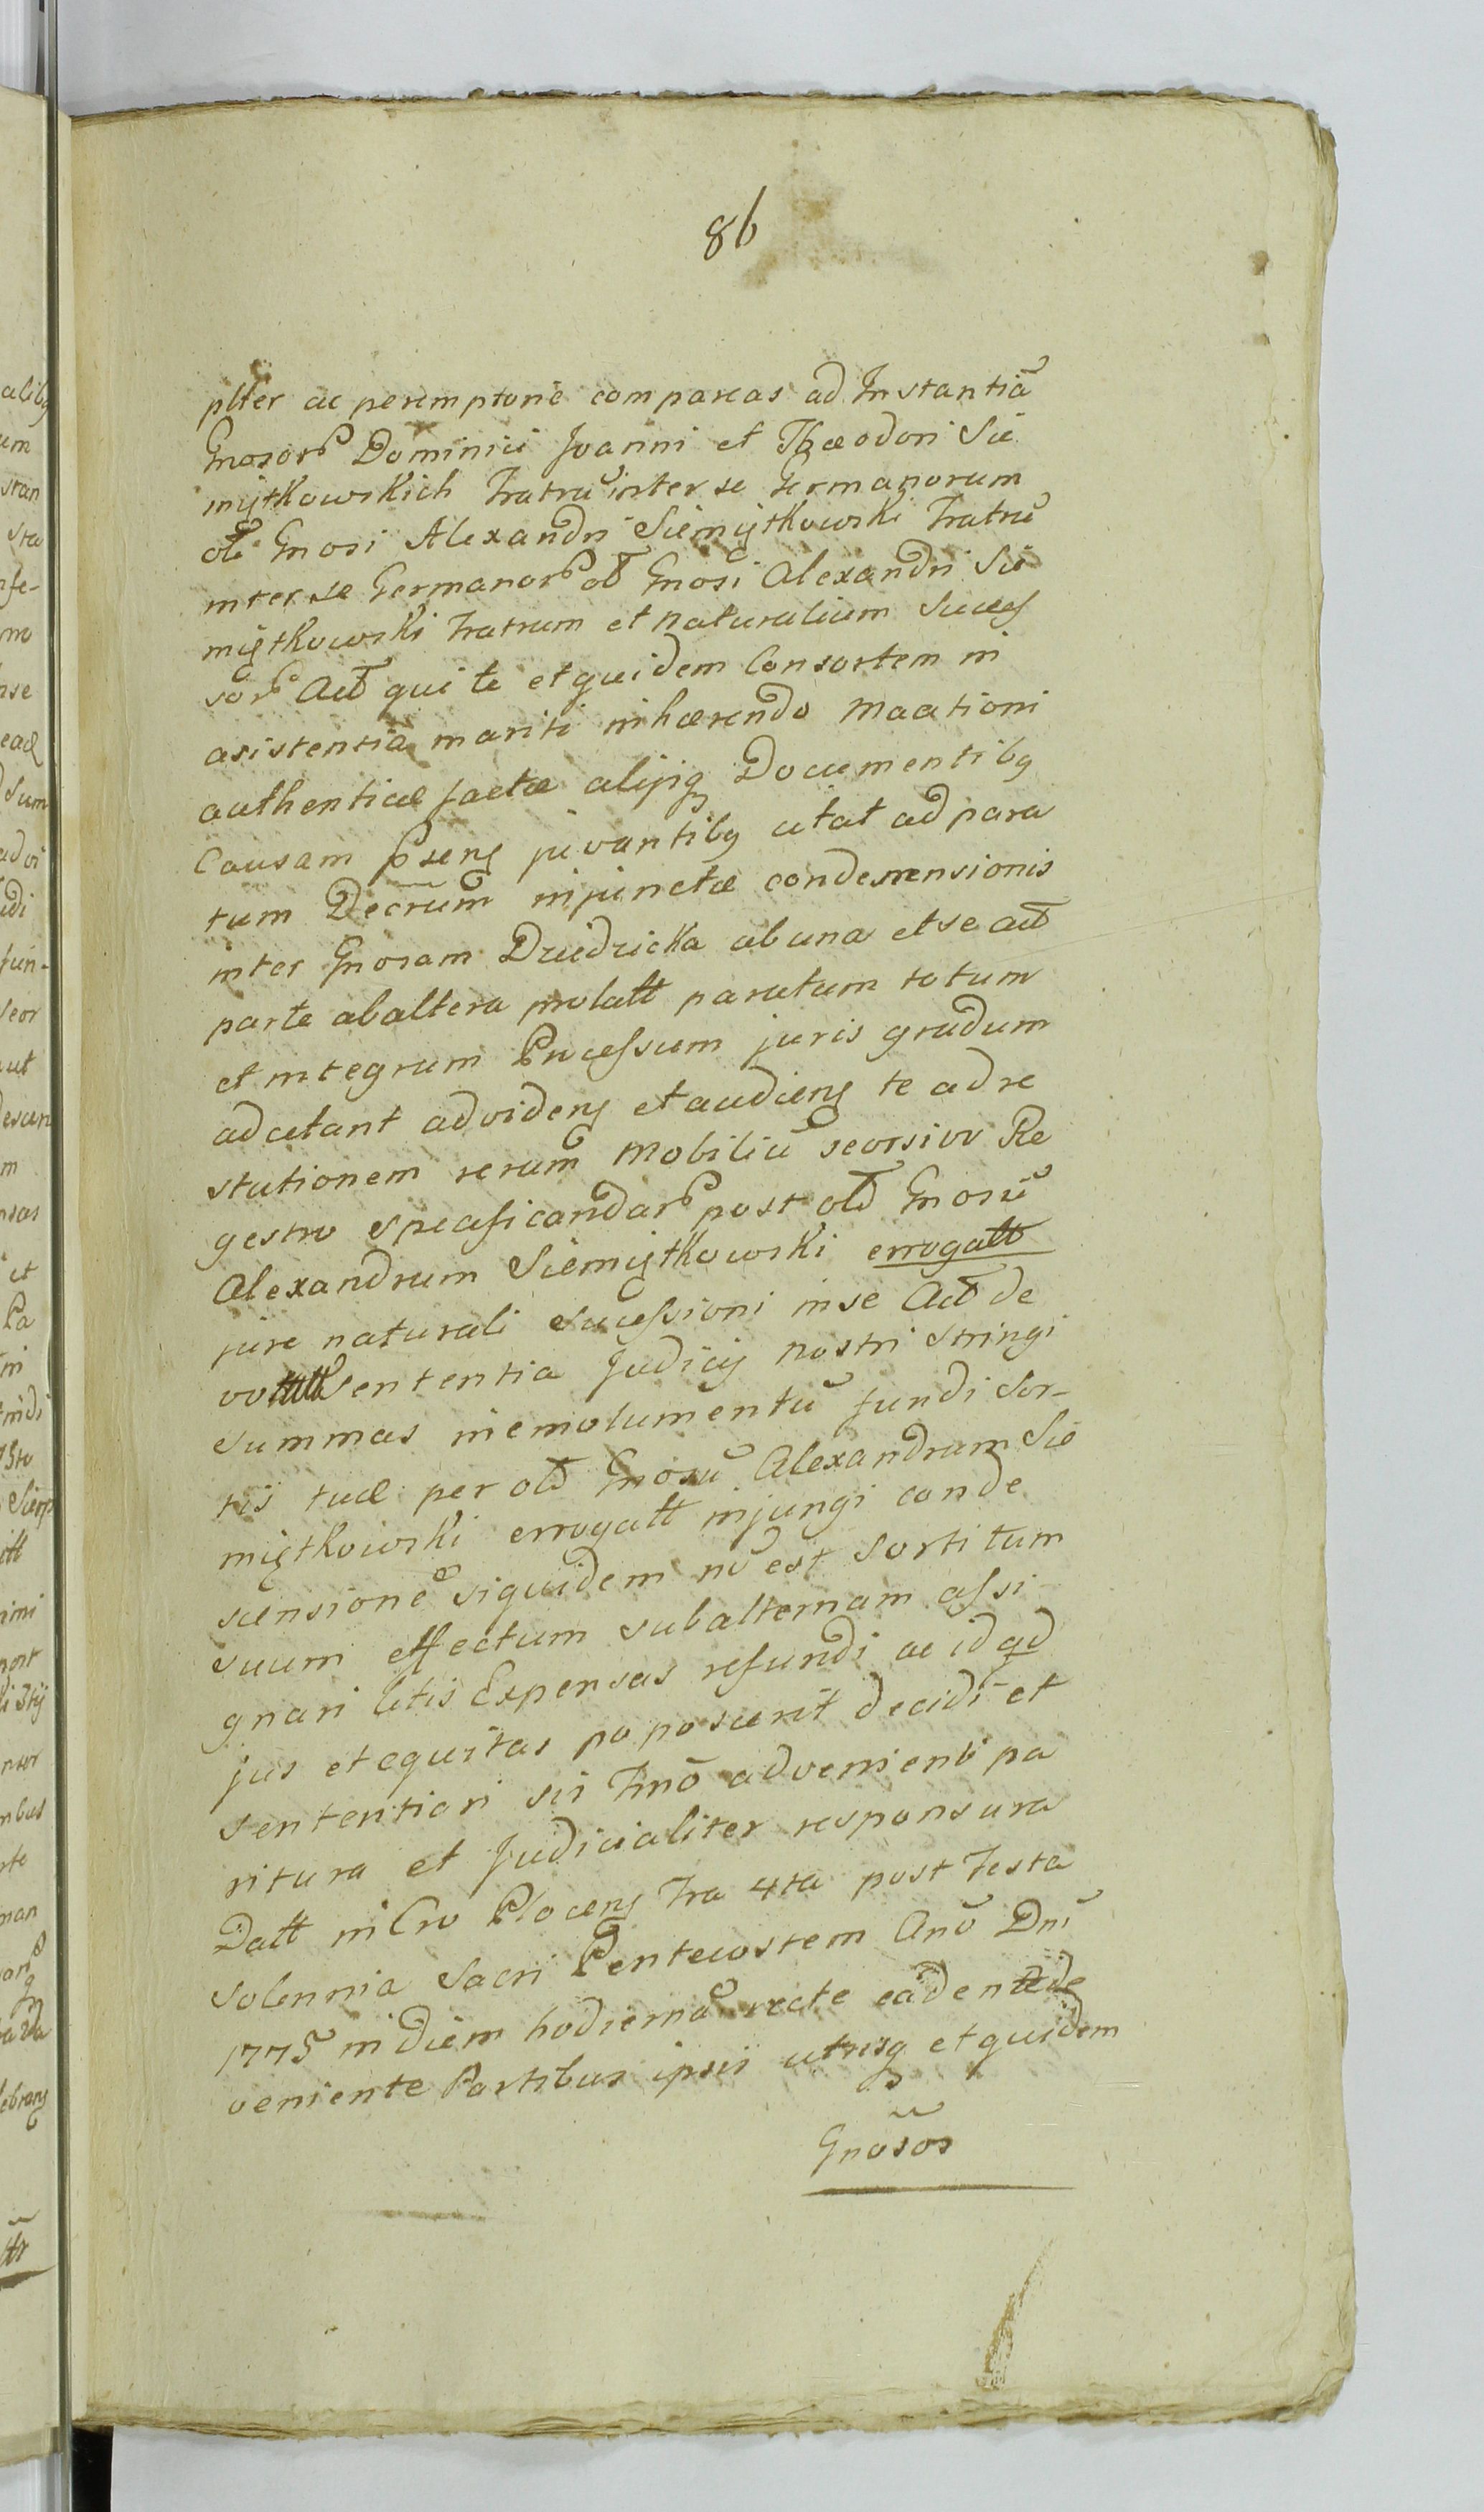 86
plter ac peremptorie compareas ad Instantiã
Gnosor Dominici Joanni et Theodori Sie
miątkowskich Fratrũ inter se Germanorum
olt Gnosi Alexandri Siemiątkowski Fratrũ
inter se Germanor olt Gnosi Alexandri Sie
miątkowski Fratrum et naturalium Succes
sor Act qui te et quidem Consortem in
asistentia mariti inhærendo Maationi
authenticæ factæ alijsq Documentibq
Causam psens juvantibq citat ad para
tum Decrum injunctæ condescensionis
inter Gnosam Dziedzicka ab una et se act
parte ab altera prolatt paratum totum
et integrum Processum juris gradum
ad citant ad videns et audiens te ad re
stutionem rerum Mobiliũ seorsivo Re
gestro specificandar post olt Gnosũ
Alexandrum Siemiątkowski errogatt
jure naturali sucessioni in se Act de
volutt Sententia Judicij nostri stringi
summas in emolumentũ fundi Sor-
tis tuæ per olt Gnosũ Alexandrum Sie
miątkowski errogatt injungi conde
scensionẽ siquidem nõ est sortitum
suum effectum subalternam assi
gnari litis Expensas refundi ac id qd
jus et equitas poposcerit decidi et
sententiari sis Tmõ advenienti pa
ritura et Judicialiter responsura
Datt in Cro Plocens Fra 4ta post Festa
solennia Sacri Pentecostem Anõ Dni
1775 in diem hodiernã recte caden de
veniente Partibus ipsis utrisq et quidem
Gnosos